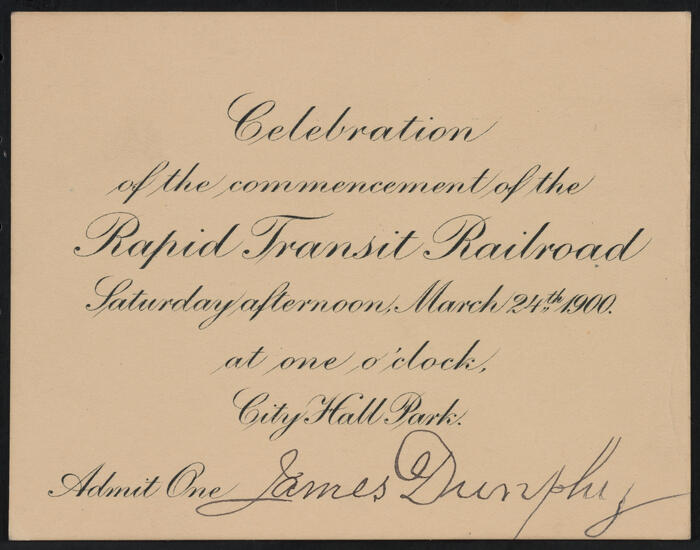 Celebration
of the commencement of the
Rapid Transit Railroad
Saturday afternoon, March 24th, 1900.
at one o'clock,
City Hall Park.
Admit One James Dunphy